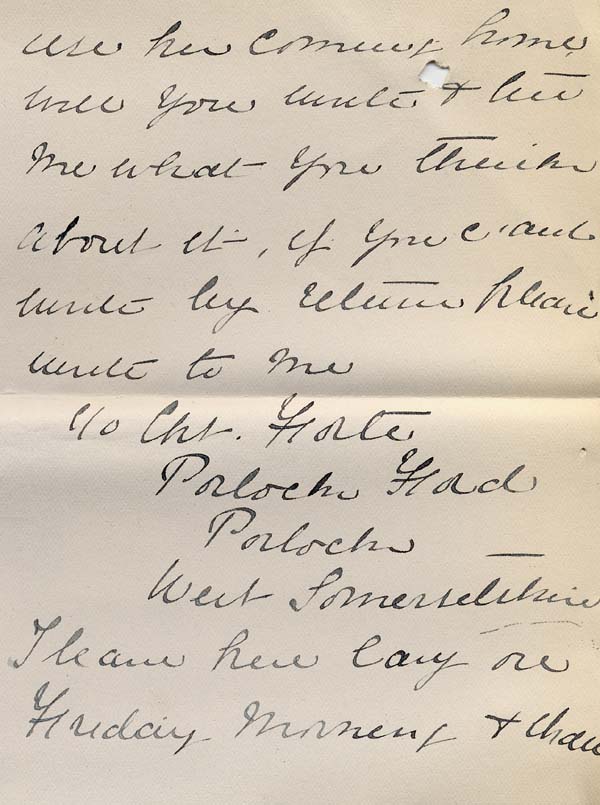 use her coming home,
will you write & tell
me what you think
about it, if you can't
write by return please
write to me
c/o Cpt. Forte
Porlock Ford
Porlock
West Somersetshire
I leave here early on
Friday Morning & shall